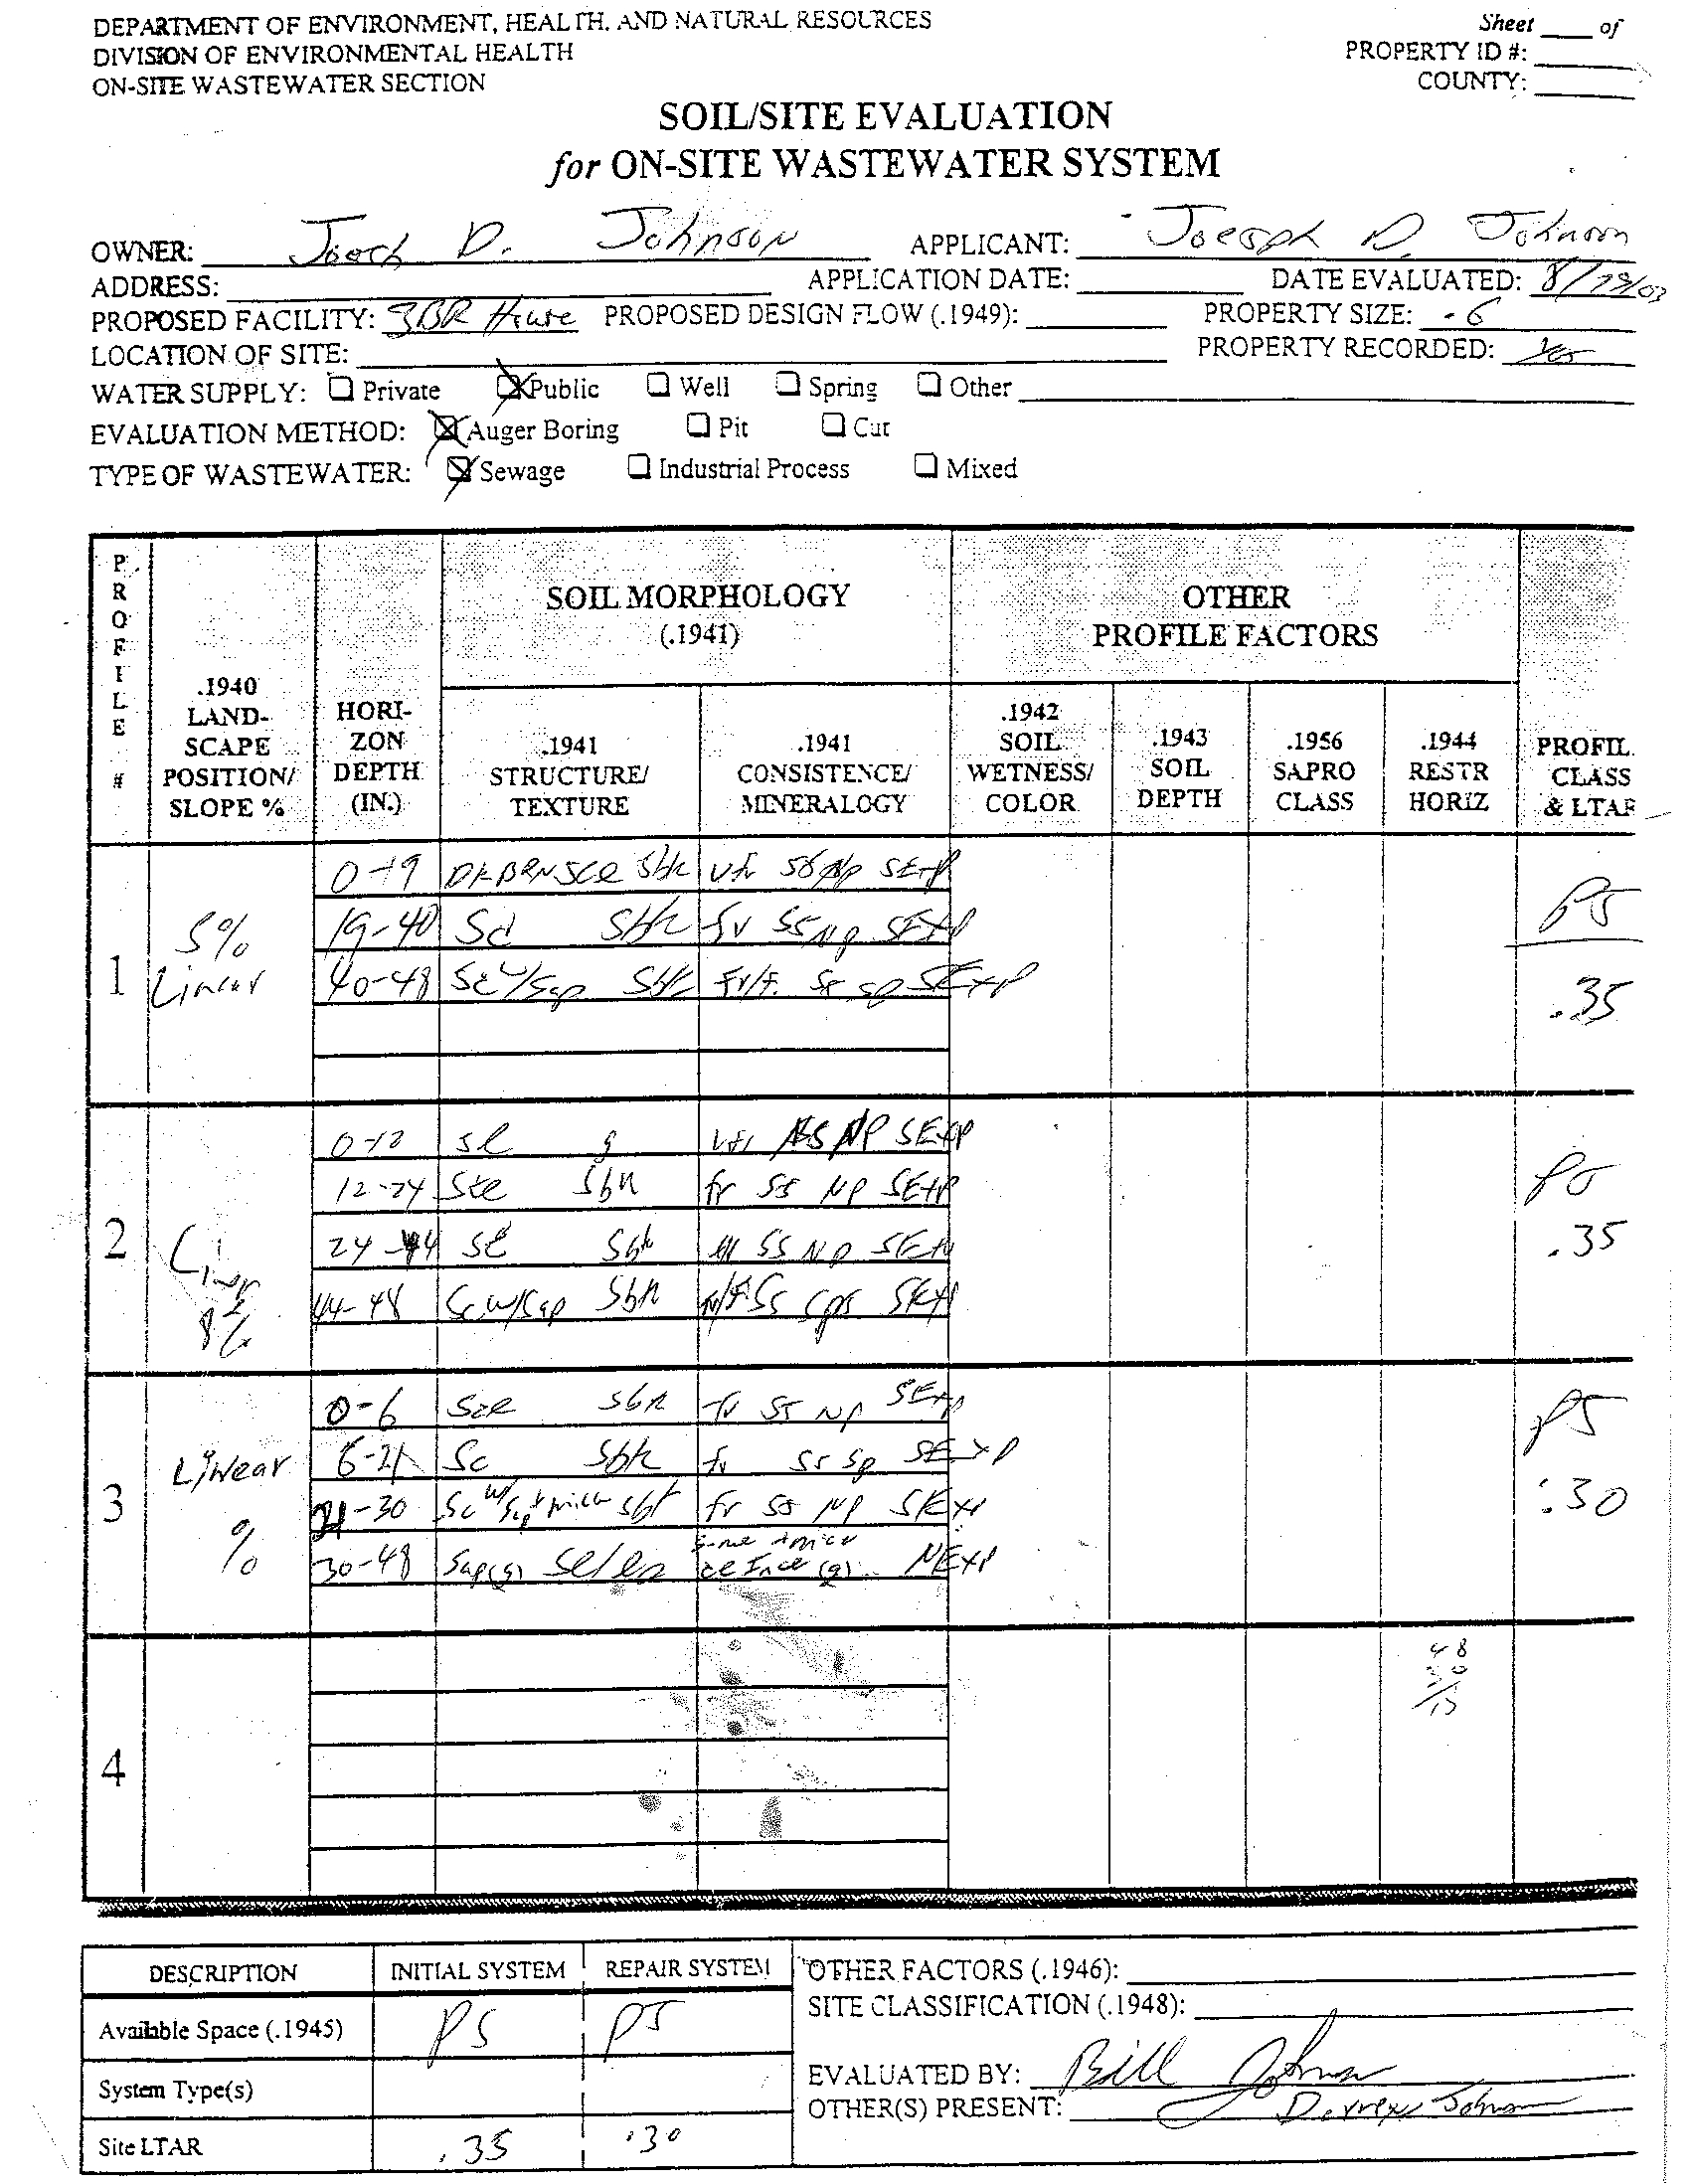 DEPARTMENT OF ENVIRONMENT, HEALTH, AND NATURAL RESOURCES
DIVISION OF ENVIRONMENTAL HEALTH
ON-SITE WASTEWATER SECTION
Sheet ____ of
PROPERTY ID #:
COUNTY:
SOIL/SITE EVALUATION
for ON-SITE WASTEWATER SYSTEM
OWNER: D. Johnson APPLICANT: Joesph D. Johnson
ADDRESS: APPLICATION DATE: DATE EVALUATED:
PROPOSED FACILITY: 3BR House PROPOSED DESIGN FLOW (.1949): PROPERTY SIZE: .6
LOCATION OF SITE: PROPERTY RECORDED: Yes
WATER SUPPLY: Private Public Well Spring Other
EVALUATION METHOD: Auger Boring Pit Cut
TYPE OF WASTEWATER: Sewage Industrial Process Mixed
PROFILE #
.1940 LAND-SCAPE POSITION/ SLOPE %
HORI-ZON DEPTH (IN.)
SOIL MORPHOLOGY (.1941)
.1941 STRUCTURE/ TEXTURE
.1941 CONSISTENCE/ MINERALOGY
OTHER PROFILE FACTORS
.1942 SOIL WETNESS/ COLOR
.1943 SOIL DEPTH
.1956 SAPRO CLASS
.1944 RESTR HORIZ
PROFIL CLASS & LTAR
1
5% Linear
0-19 DKBRNSCL Sbk vfr SEXP
19-40 Sbk fr SS NP SEXP
40-48 SC w/Sap Sbk fr/f. SS SP SEXP
PS
.35
2
8%
0-12 SL g vfr NS NP SEXP
12-24 SCL Sbk fr SS NP SEXP
24-44 Sbk SS NP SEXP
44-48 SC w/Sap Sbk SEXP
PS
.35
3
Linear
%
0-6 SCL Sbk fr SS NP SEXP
6-21 SC Sbk fr SS SP SEXP
21-30 SC w/Sap + mica sbk fr SS NP SEXP
30-48 Sap(s) NEXP
PS
.30
48
4
DESCRIPTION INITIAL SYSTEM REPAIR SYSTEM
Available Space (.1945) PS PS
System Type(s)
Site LTAR .35 .30
OTHER FACTORS (.1946):
SITE CLASSIFICATION (.1948):
EVALUATED BY: Bill Johnson
OTHER(S) PRESENT: Darren Johnson